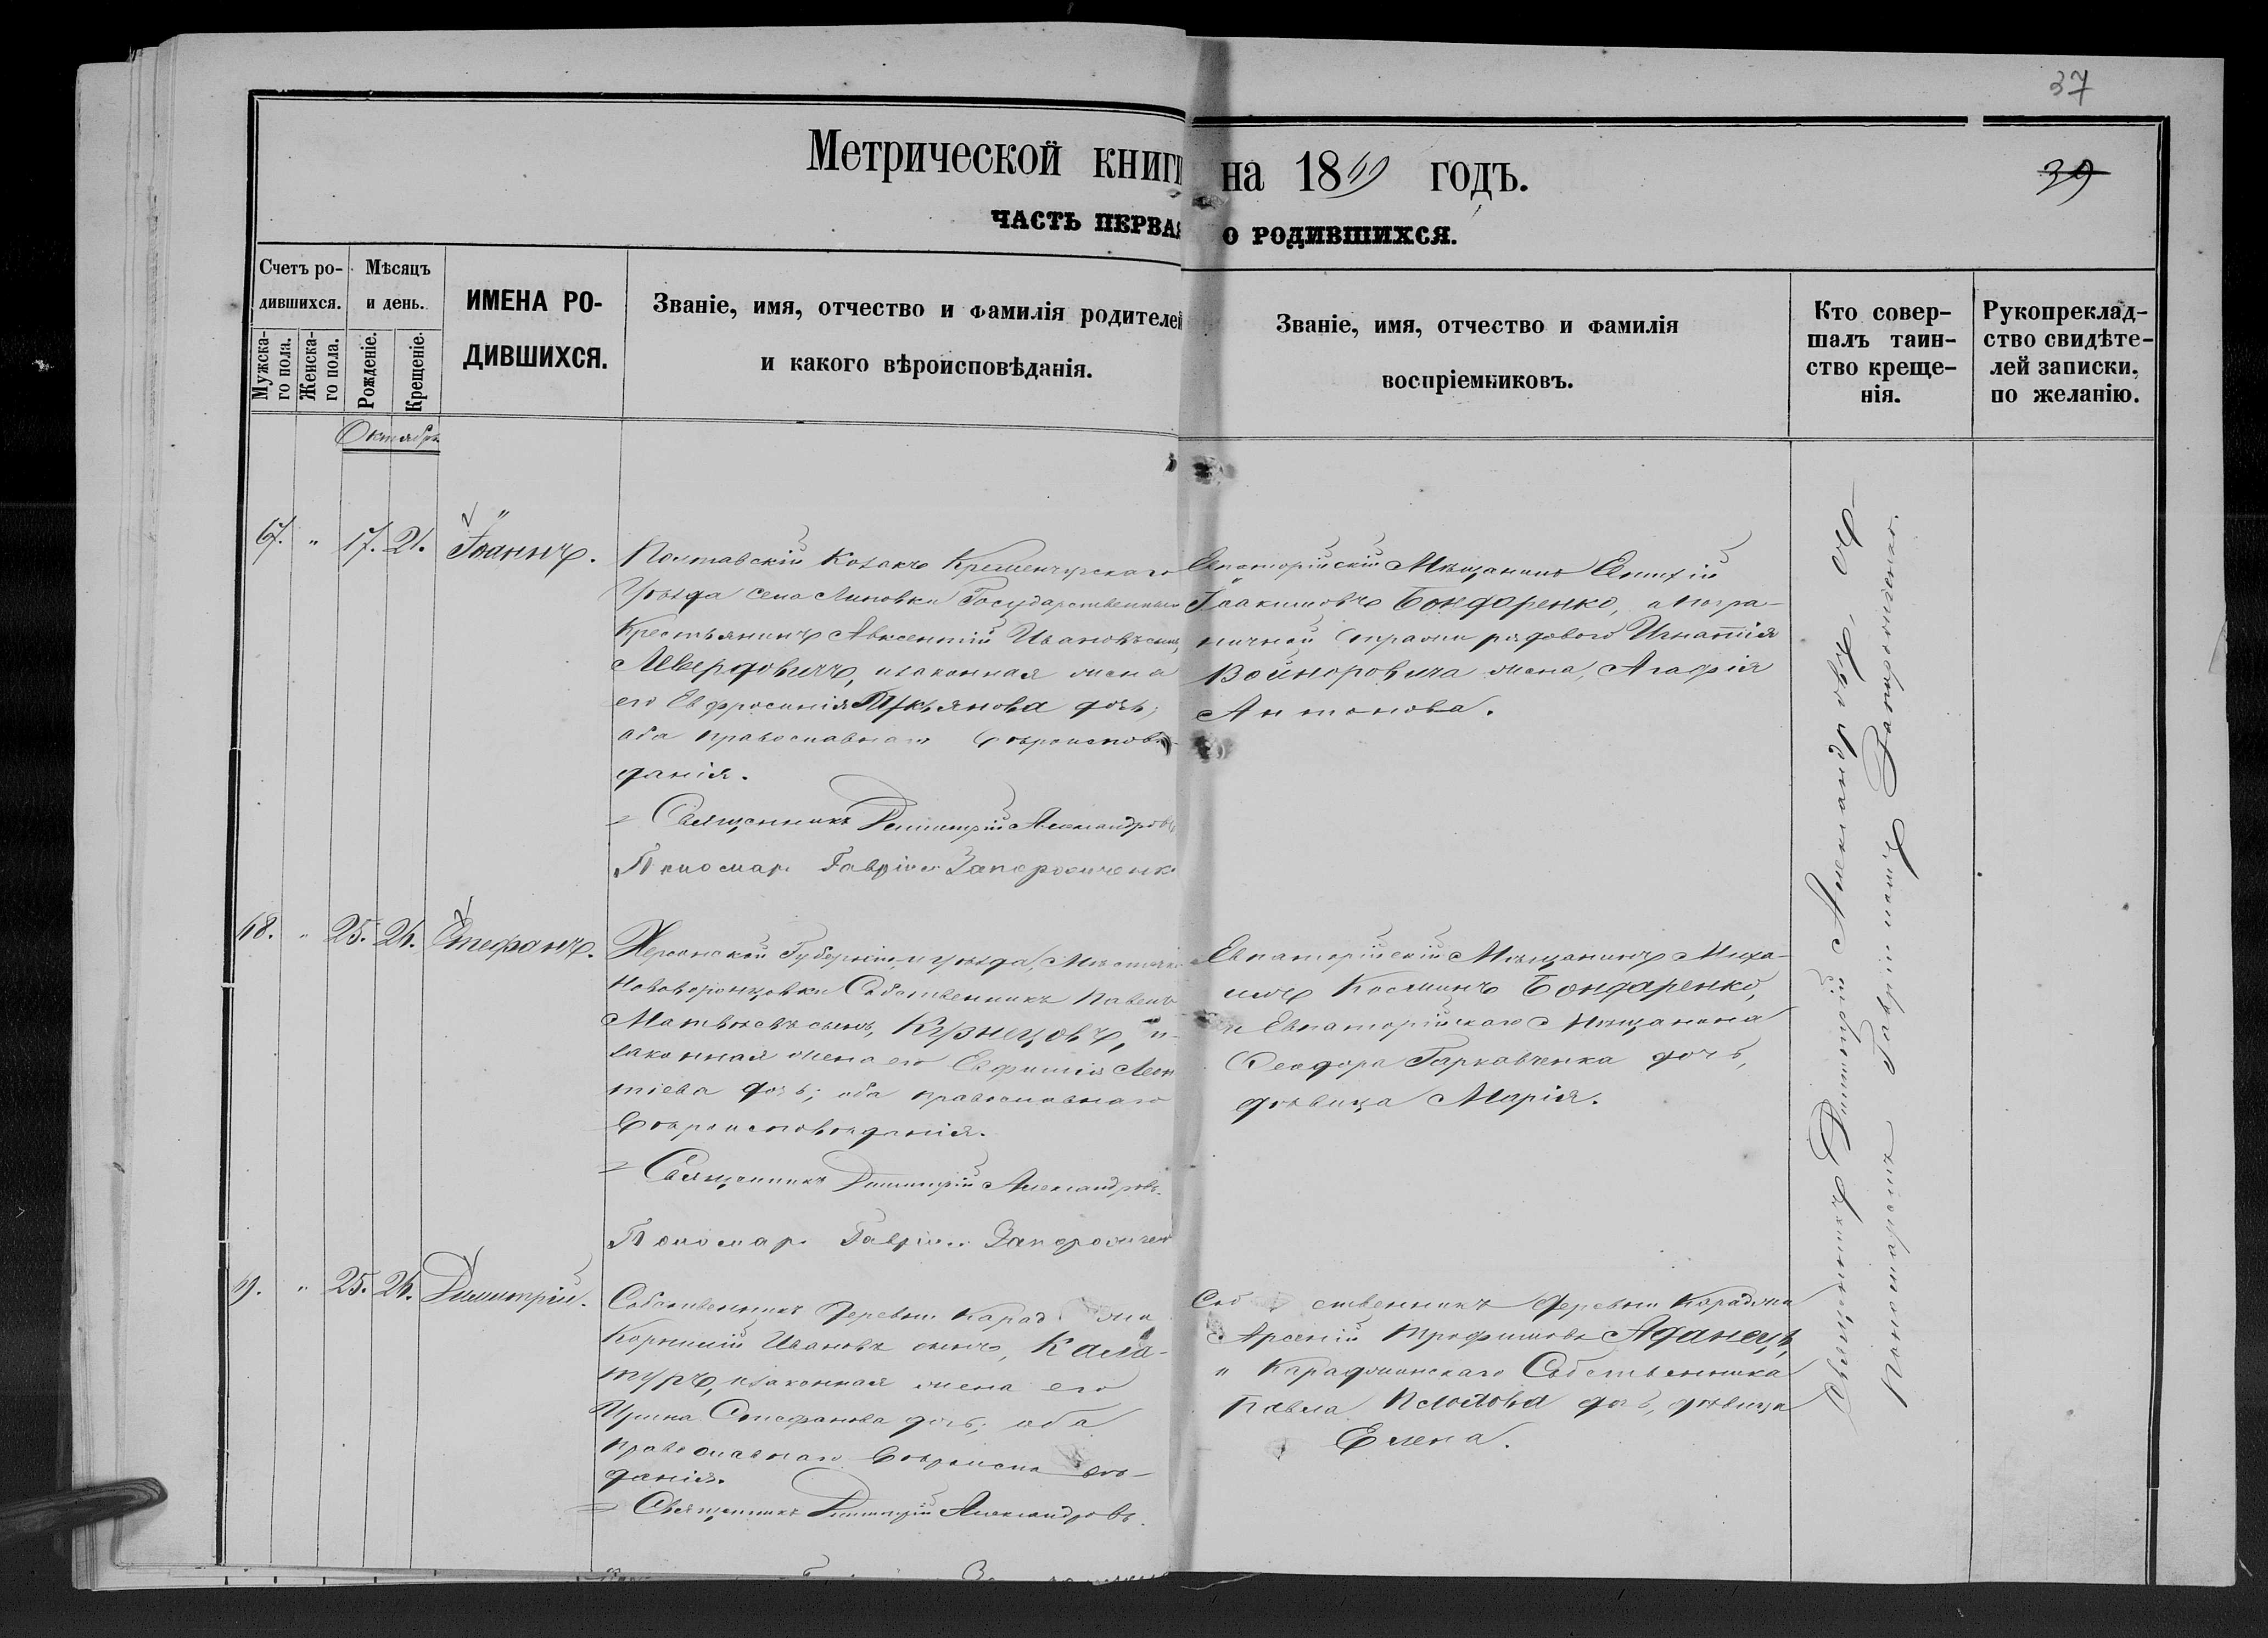 37
39
Метрической книги на 1869 годъ.
ЧАСТЬ ПЕРВАЯ О РОДИВШИХСЯ.
Счетъ ро-
дившихся.
Мужска-
го пола.
Женска-
го пола.
Мѣсяцъ
и день.
Рожденіе.
Крещеніе.
ИМЕНА РО-
ДИВШИХСЯ.
Званіе, имя, отчество и фамилія родителей
и какого вѣроисповѣданія.
Званіе, имя, отчество и фамилія
воспріемниковъ.
Кто совер-
шалъ таин-
ство креще-
нія.
Рукоприклад-
ство свидѣте-
лей записки,
по желанію.
Октябрь
67. " 17. 21. Іоаннъ.
Полтавскій Козакъ Кременчугскаго
Уѣзда Села Государственный
Крестьянинъ Авксентій Ивановъ сынъ
изаконная жена
его Евфросинія Лукьянова дочь;
оба православнаго вѣроисповѣ-
данія.
Священникъ Димитрій Александровъ
Пономарь Гавріилъ Запорожченко
Евпаторійскій Мѣщанинъ
Іоакимовъ Бондаренко, а погра-
ничной стражи рядового Игнатія
Войноровича жена, Агафія
Антонова.
68. " 25. 26. Стефанъ.
Херсонской Губерніи, и уѣзда, Мѣстечка
Нововоронцовки Собственникъ Павелъ
Матвѣевъ сынъ, Кузнецовъ, и
законная жена его Евфимія Леон
тіева дочь; оба православнаго
Вѣроисповѣданія.
Священникъ Димитрій Александровъ.
Пономарь Гавріилъ Запорожчен
Евпаторійскій Мѣщанинъ Миха-
илъ Косминъ Бондаренко,
и Евпаторійскаго Мѣщанина
Феодора Гаркавченка дочь,
дѣвица Марія.
69. " 25. 26. Димитрій.
Собственникъ деревни
Корнилій Ивановъ сынъ, Кала-
муръ, изаконная жена его
Ирина Стефанова дочь; оба
православнаго Вѣроисповѣ-
данія.
Священникъ Димитрій Александровъ.
Собственникъ деревни
Арсеній Трофимовъ Аданецъ,
и Собственника
Павла дочь, дѣвица
Елена.
Священникъ Димитрій Александровъ, съ
Пономаремъ Гавріиломъ Запорожченко.